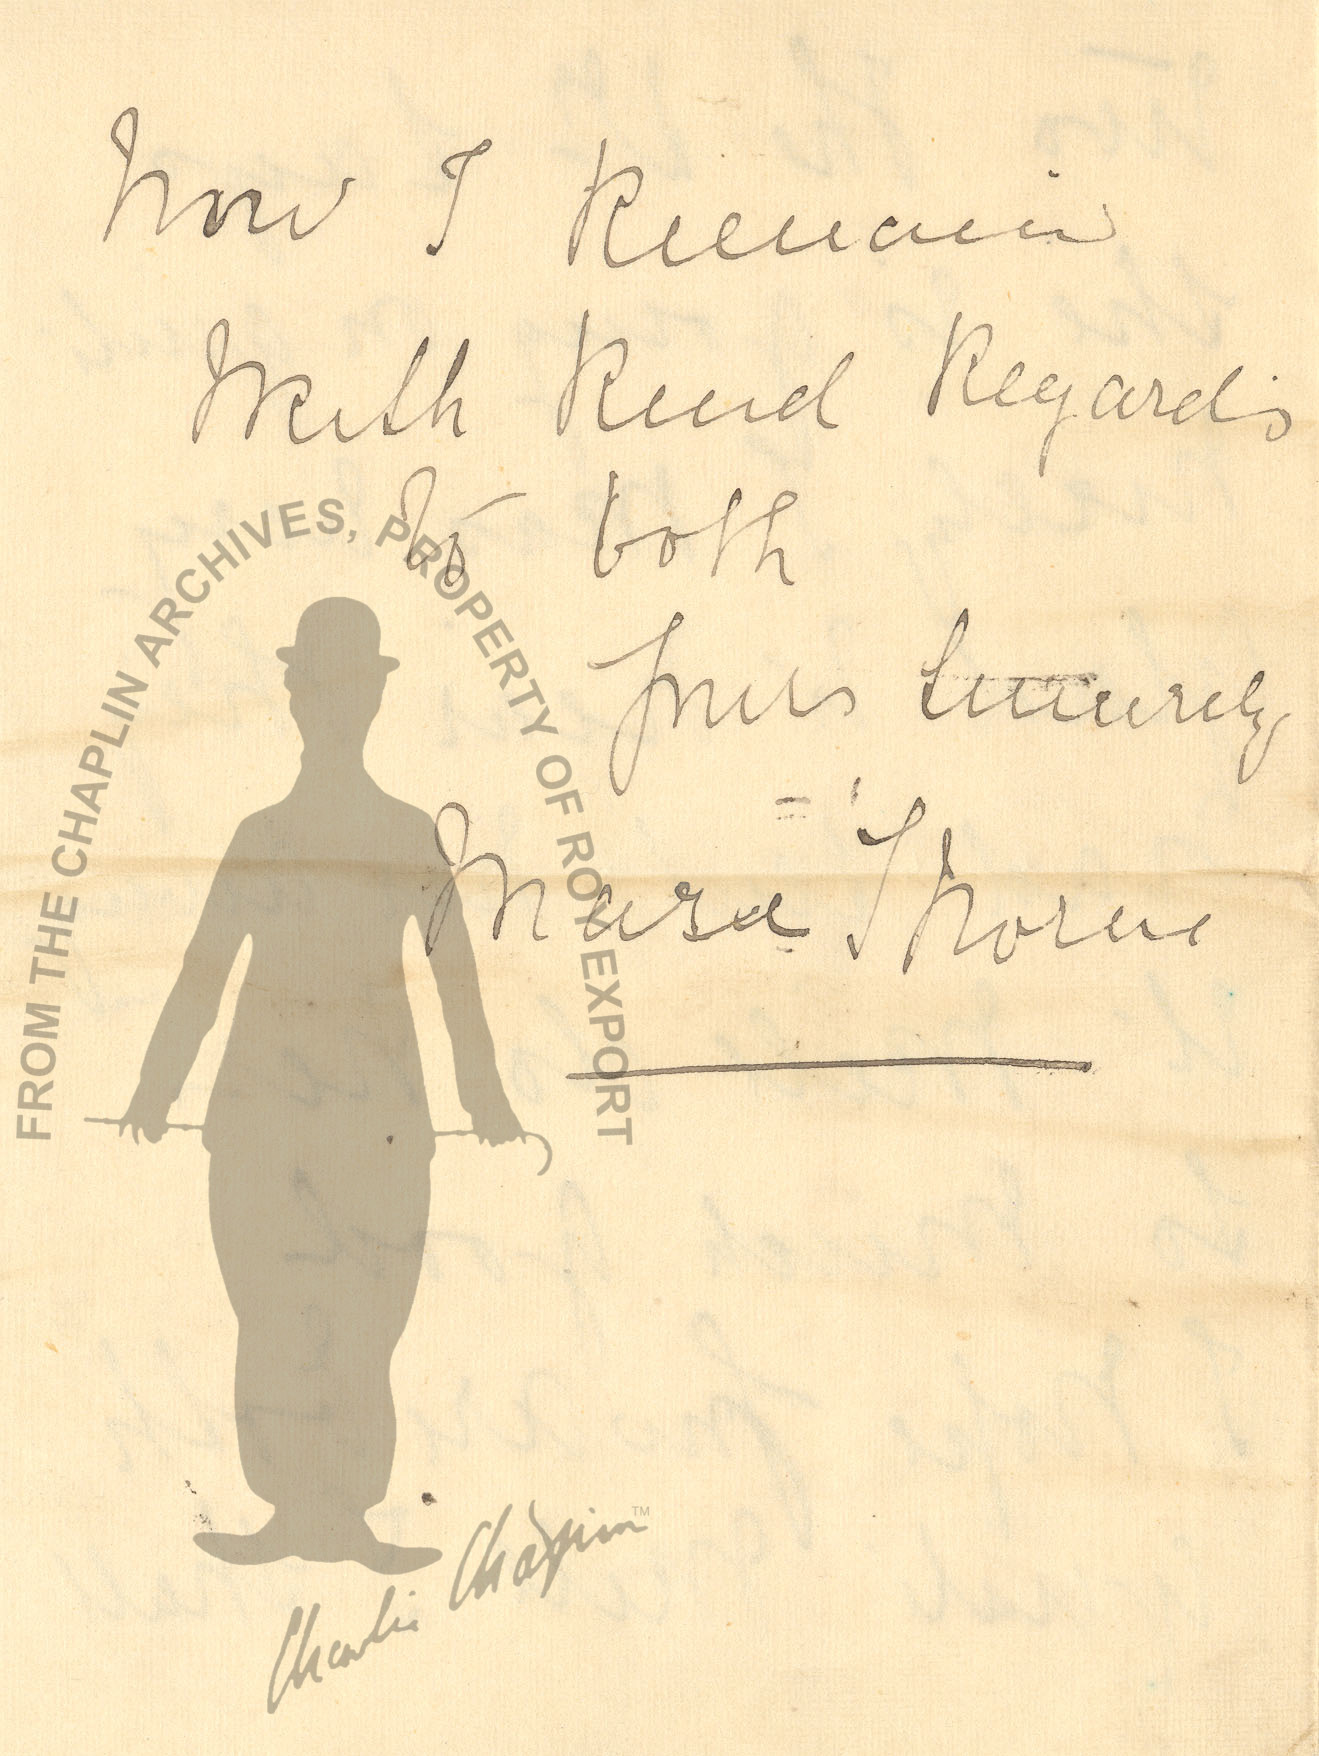 Now I Remain
With Kind Regards
to both
Yours Sincerely
Thorne
FROM THE CHAPLIN ARCHIVES, PROPERTY OF ROY EXPORT
Charlie Chaplin™